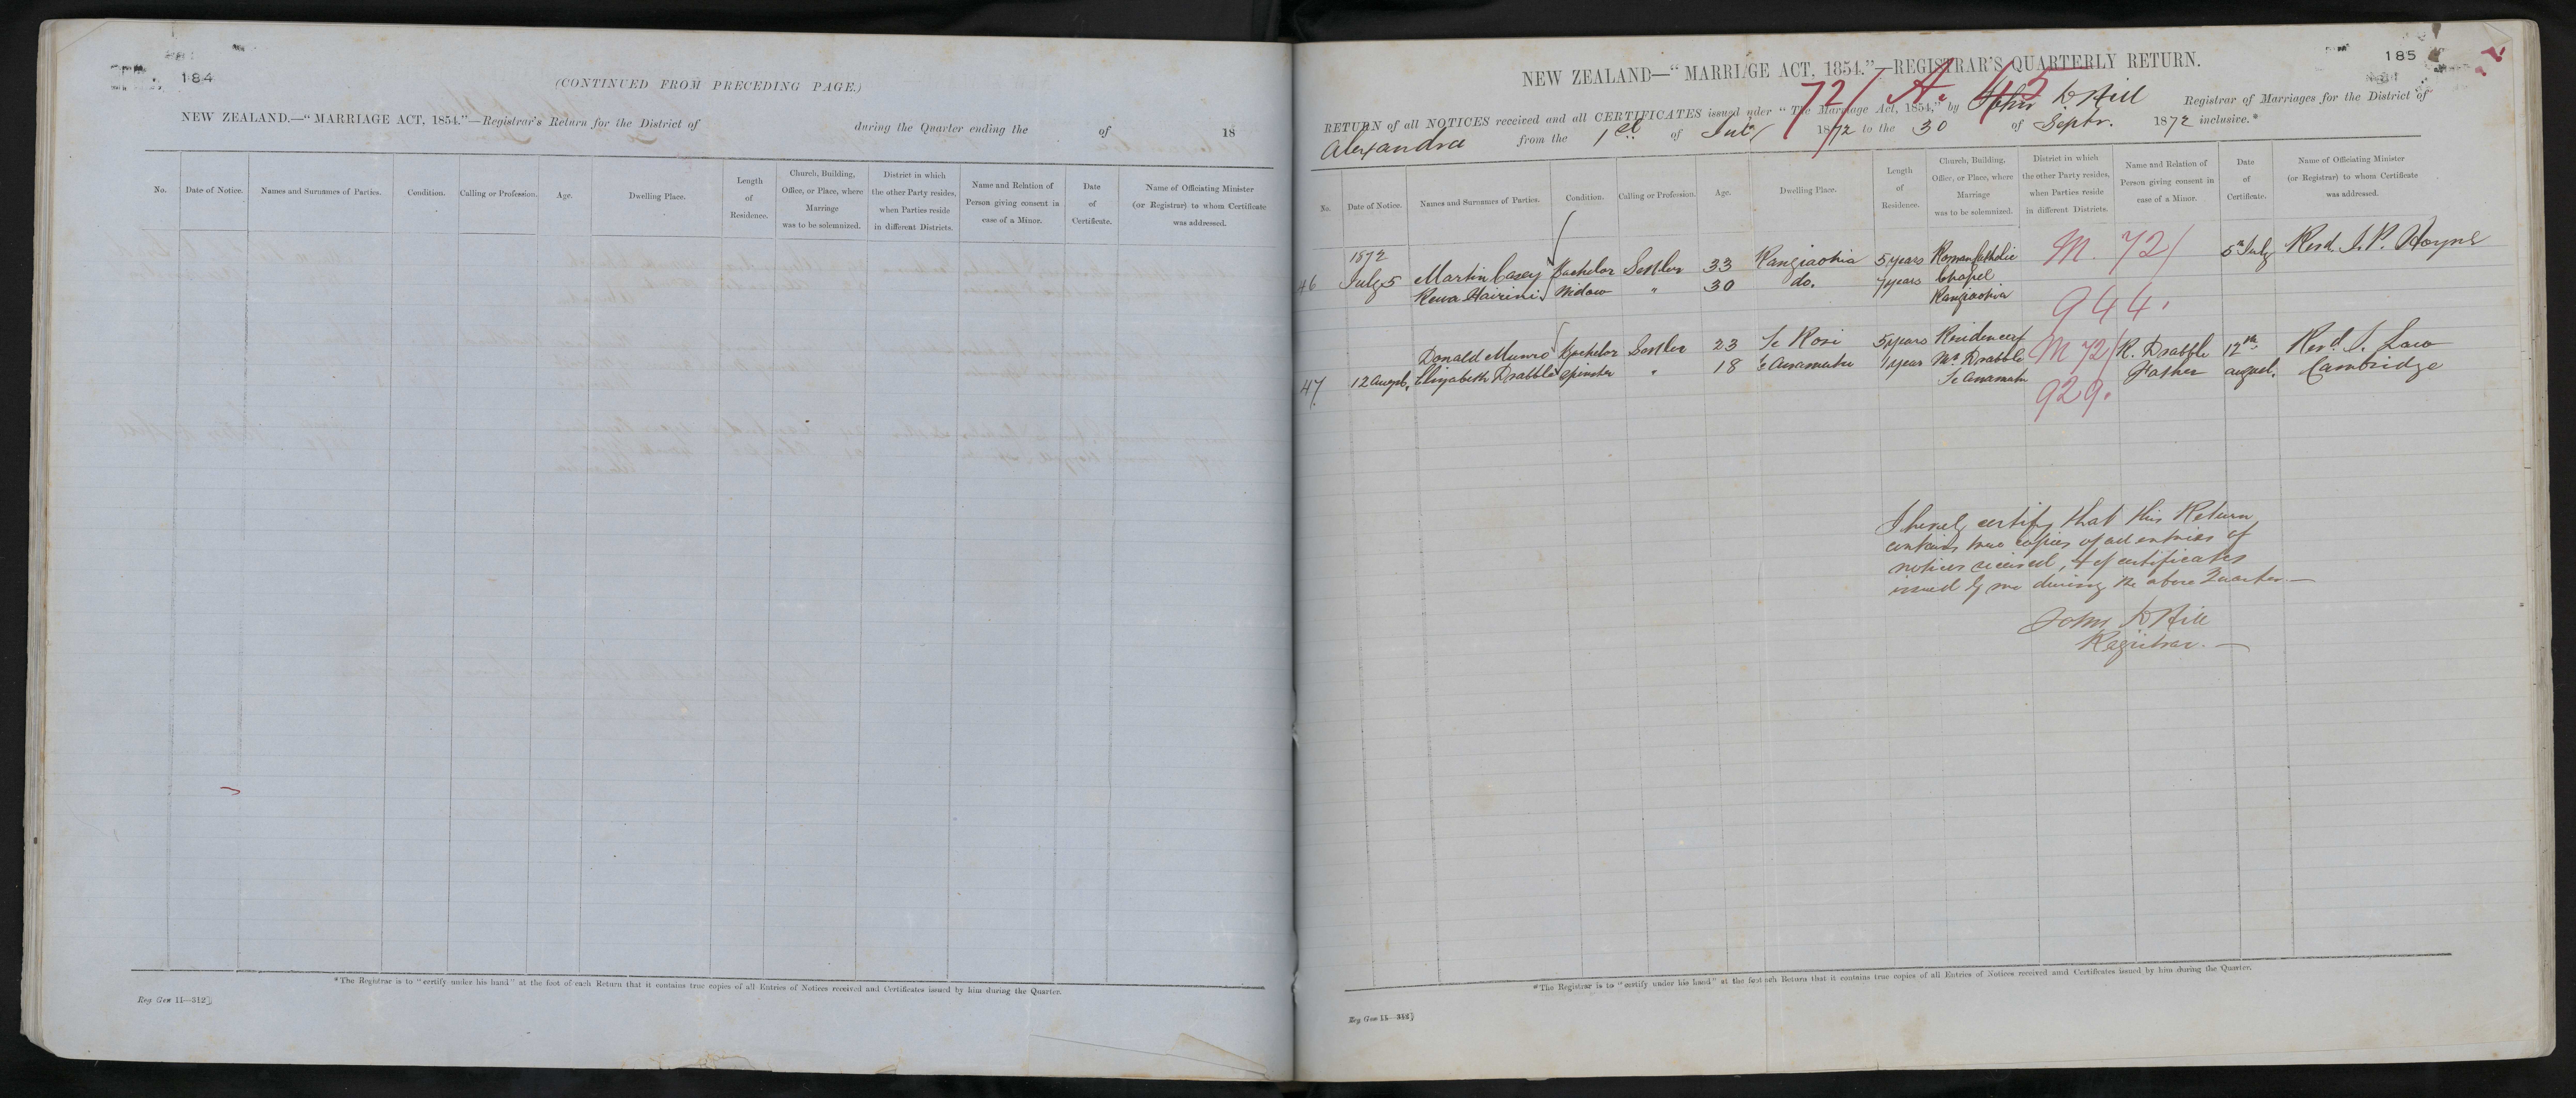 184
(CONTINUED FROM PRECEDING PAGE.)
NEW ZEALAND.—"MARRIAGE ACT, 1854."—Registrar's Return for the District of during the Quarter ending the of 18
No. Date of Notice. Names and Surnames of Parties. Condition. Calling or Profession. Age. Dwelling Place. Length of Residence. Church, Building, Office, or Place, where Marriage was to be solemnized. District in which the other Party resides, when Parties reside in different Districts. Name and Relation of Person giving consent in case of a Minor. Date of Certificate. Name of Officiating Minister (or Registrar) to whom Certificate was addressed.
*The Registrar is to "certify under his hand" at the foot of each Return that it contains true copies of all Entries of Notices received and Certificates issued by him during the Quarter.
Reg Gen 11—312]
185
NEW ZEALAND—"MARRIAGE ACT, 1854."—REGISTRAR'S QUARTERLY RETURN.
72/ A. 45
RETURN of all NOTICES received and all CERTIFICATES issued uder "The Marriage Act, 1854," by John D Hill Registrar of Marriages for the District of
Alexandra from the 1st of July 1872 to the 30 of Septr. 1872 inclusive.*
No. Date of Notice. Names and Surnames of Parties. Condition. Calling or Profession. Age. Dwelling Place. Length of Residence. Church, Building, Office, or Place, where Marriage was to be solemnized. District in which the other Party resides, when Parties reside in different Districts. Name and Relation of Person giving consent in case of a Minor. Date of Certificate. Name of Officiating Minister (or Registrar) to whom Certificate was addressed.
1872
46 July 5 Martin Casey Bachelor Settler 33 Rangiaohia 5 years Roman Catholic M. 72/ 5th July Revd. J. P.
Rewa Hairini Widow " 30 do. 7 years Chapel
Rangiaohia 944.
Donald Munro Bachelor Settler 23 Te Rori 5 years Residence of M 72/ R. Drabble 12th Revd. J. Law
47 12 August. Elizabeth Drabble Spinster " 18 Te Awamutu 1 year Mr Drabble Father august. Cambridge
Te Awamutu 929.
I hereby certify that this Return
contains true copies of all entries of
notices received, & of certificates
issued by me during the above Quarter.—
John D Hill
Registrar.—
*The Registrar is to "certify under his hand" at the foot each Return that it contains true copies of all Entries of Notices received and Certificates issued by him during the Quarter.
Reg Gen 11—312]